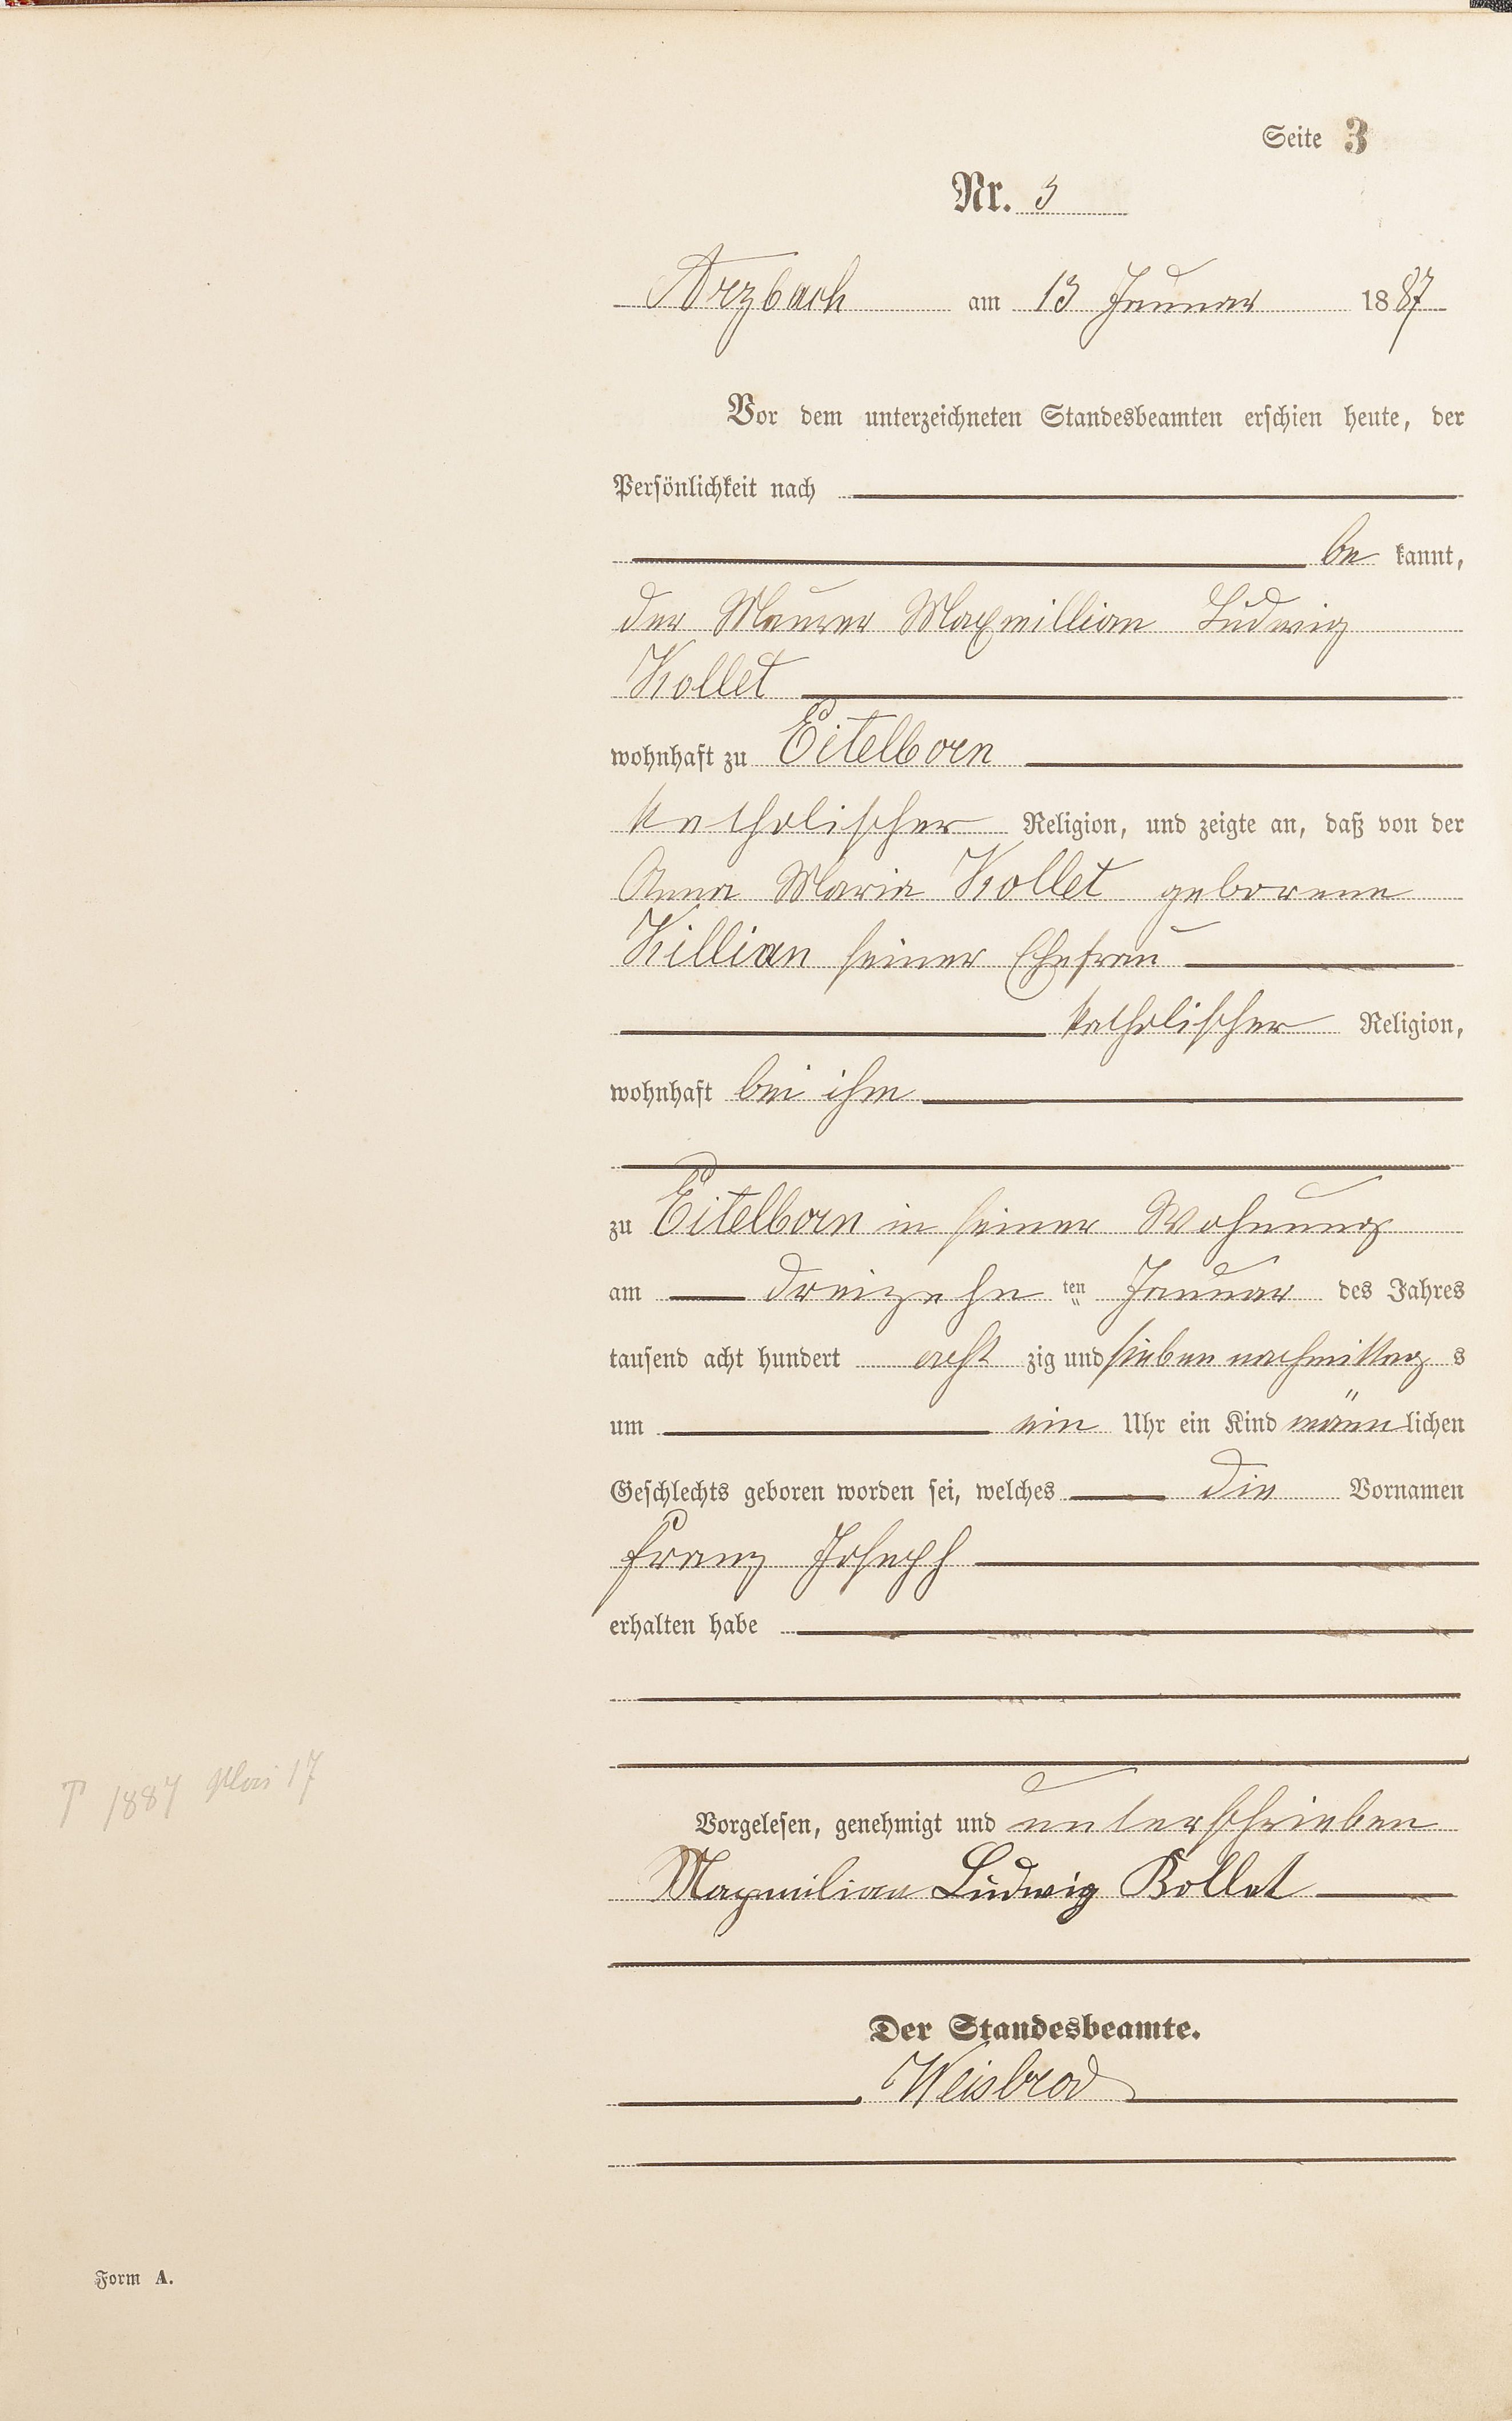 Seite 3
Nr. 3
Arzbach am 13 Januar 1887
Vor dem unterzeichneten Standesbeamten erschien heute, der
Persönlichkeit nach
be kannt,
der Maurer Maxmillian Ludwig
Kollet
wohnhaft zu Eitelborn
katholischer Religion, und zeigte an, daß von der
Anna Maria Kollet geborene
Killian seiner Ehefrau
katholischer Religion,
wohnhaft bei ihm
zu Eitelborn in seiner Wohnung
am dreizehn ten Januar des Jahres
tausend acht hundert acht zig und sieben nachmittag s
um ein Uhr ein Kind männlichen
Geschlechts geboren worden sei, welches die Vornamen
Franz Joseph
erhalten habe
Vorgelesen, genehmigt und unterschrieben
Maxmilian Ludwig Kollet
Der Standesbeamte.
Weisbrod
1887 Mai 17
Form A.